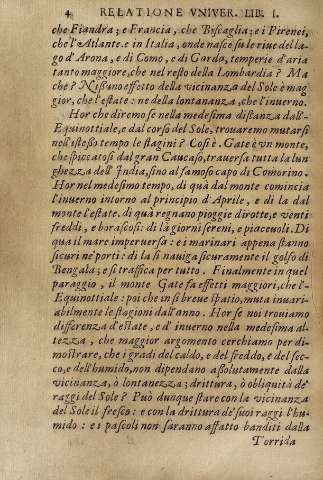 4 RELATIONE VNIVER. LIB. I.
che Fiandra; e Francia, che Biscaglia; e i Pirenei,
che l'Atlante. e in Italia, onde nasce sù le riue del la-
go d'Arona, e di Como, e di Garda, temperie d'aria
tanto maggiore, che nel resto della Lombardia? Ma
che? Nissuno effetto della vicinanza del Sole è mag
gior, che l'estate: ne della lontananza, che l'inuerno.
Hor che diremo se nella medesima distanza dall'-
Equinottiale, e dal corso del Sole, trouaremo mutarsi
nell'istesso tempo le stagini? Così è. Gate è vn monte,
che spiccatosi dal gran Caucaso, trauersa tutta la lun
ghezza dell'India, sino al famoso capo di Comorino.
Hor nel medesimo tempo, di quà dal monte comincia
l'inuerno intorno al principio d'Aprile, e di la dal
monte l'estate. di quà regnano pioggie dirotte, e venti
freddi, e borascosi: di là giorni sereni, e piaceuoli. Di
qua il mare imperuersa: e i marinari appena stanno
sicuri ne' porti: di là si nauiga sicuramente il golfo di
Bengala; e si traffica per tutto. Finalmente in quel
paraggio, il monte Gate fa effetti maggiori, che l'E-
quinottiale: poi che in sì breue spatio, muta inuari-
abilmente le stagioni dall'anno. Hor se noi trouiamo
differenza d'estate, e d'inuerno nella medesima al-
tezza, che maggior argomento cerchiamo per di-
mostrare, che i gradi del caldo, e del freddo, e del sec-
co, e dell'humido, non dipendano assolutamente dalla
vicinanza, ò lontanezza; drittura, ò obliquità de'
raggi del Sole? Può dunque stare con la vicinanza
del Sole il fresco: e con la drittura de' suoi raggi l'hu-
mido: e i pascoli non saranno affatto banditi dalla
Torrida